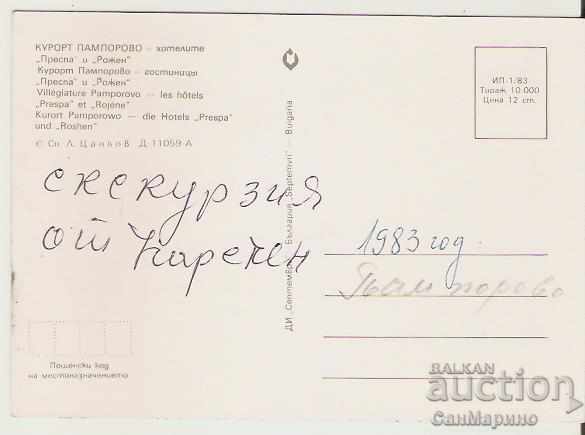 КУРОРТ ПАМПОРОВО – хотелите
„Преспа" и „Рожен"
Курорт Пампорово – гостиницы
„Преспа" и „Рожен"
Villégiature Pamporovo — les hôtels
„Prespa" et „Rojène"
Kurort Pamporowo — die Hotels „Prespa"
und „Roshen"
© Сн. Л. Цанков Д 11059-А
ДИ „Септември", България „Septemvri" – Bulgaria
ИП-1/83
Тираж 10 000
Цена 12 ст.
екскурзия
от Наречен
1983 год.
Пампорово
Пощенски код
на местоназначението
BALKAN
auction
СанМарино